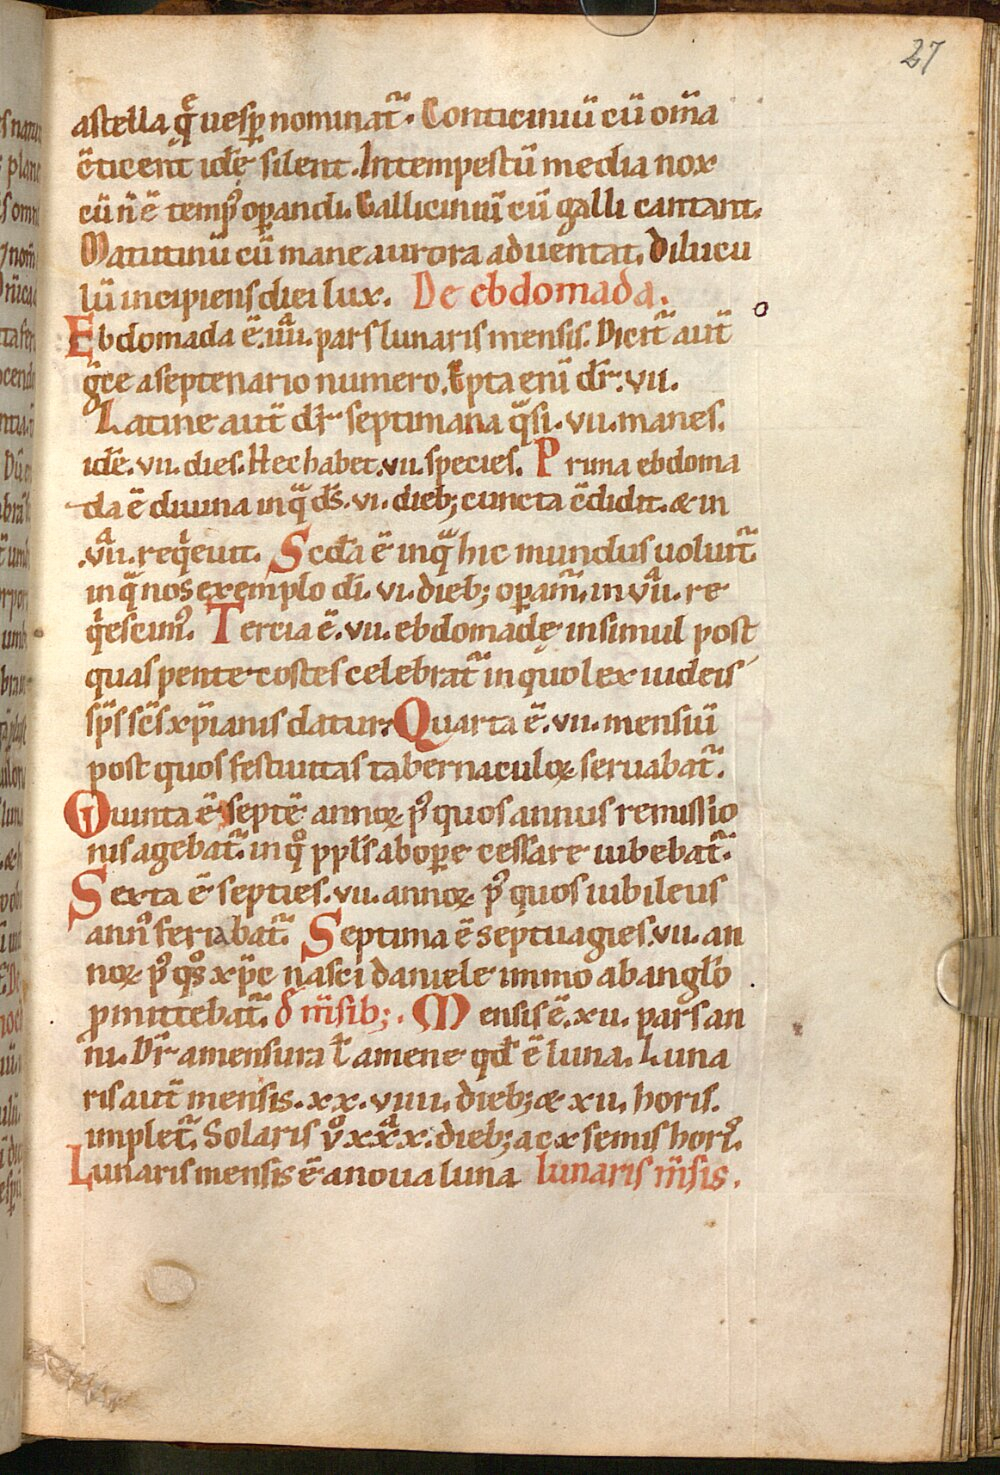 27
astella q̄ͤ uesp̄ nominat᷑. Conticiniū cū om̄a
ēticent̄ idē silent. Intempestū media nox
cū n̄ ē temp᷒ op̄andi. Gallicinuū cū galli cantant.
Matutinū cū mane aurora aduentat. Dilucu
lū incipiens diei lux. De ebdomada.
Ebdomada ē .iiiiᵃ. pars lunaris mensis. Dicit᷑ aut̄
gͬce a septenario numero. Epta enī dr̄ .vii.
Latine aut̄ dr̄ septimana qᵃsi .vii. manes.
idē .vii. dies. Hec habet .vii. species. Prima ebdoma
da ē diuina in qᵃ ds̄ .vi. dieb; cuncta ꝯdidit. & in
.viiᵃ. reqⁱeuit. Scd̄a ē in qᵃ hic mundus uoluit᷑
in qᵃ nos exemplo dī .vi. dieb; op̄am᷑. in viiᵃ. re
qⁱescim᷒. Tercia ē .vii. ebdomadę insimul post
quas pentecostes celebrat᷑ in quo lex iudeis
sp̄s sc̄s xp̄ianis datur. Quarta ē .vii. mensiū
post quos festiuitas tabernaculoꝝ seruabat᷑.
Quinta ē septē annoꝝ p᷒ quos annus remissio
nis agebat᷑. in qᵒ ppl̄s ab ope cessare iubebat᷑.
Sexta ē septies .vii. annoꝝ p᷒ quos iubileus
ann᷒ feriabat᷑. Septima ē septuagies .vii. an
noꝝ p᷒ qᵒs xp̄c nasci daniele immo ab anglo
p̄mittebat᷑. d̄ m̄sib;. Mensis ē .xii. pars an
ni. Dr̄ a mensura ł a mene qd̄ ē luna. Luna
ris aut̄ mensis .xx.viiii. dieb; & xii. horis.
implet᷑. Solaris vᵒ xxxᵃ. dieb; ac x semis hor᷒.
Lunaris mensis ē a noua luna lunaris m̄sis.